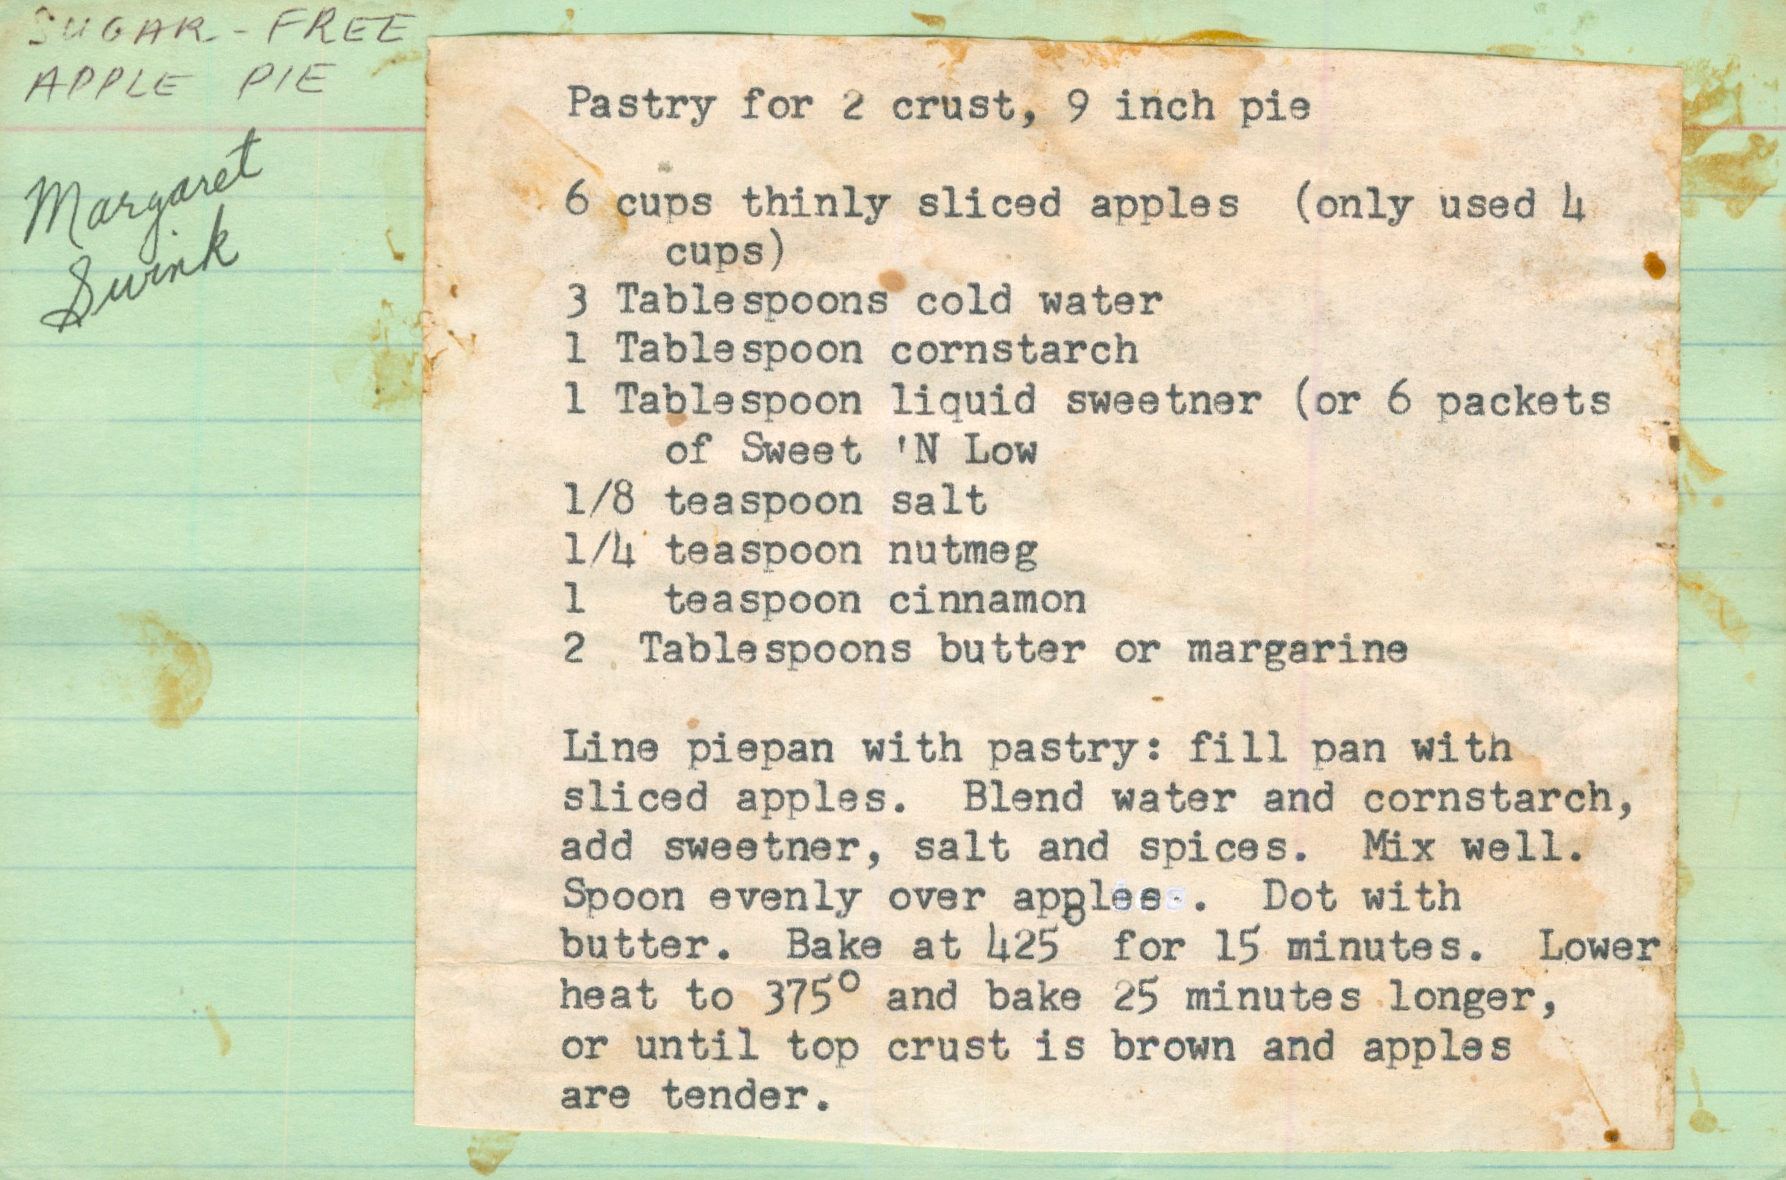 SUGAR-FREE
APPLE PIE
Margaret
Swink
Pastry for 2 crust, 9 inch pie
6 cups thinly sliced apples (only used 4
cups)
3 Tablespoons cold water
1 Tablespoon cornstarch
1 Tablespoon liquid sweetner (or 6 packets
of Sweet 'N Low
1/8 teaspoon salt
1/4 teaspoon nutmeg
1 teaspoon cinnamon
2 Tablespoons butter or margarine
Line piepan with pastry: fill pan with
sliced apples. Blend water and cornstarch,
add sweetner, salt and spices. Mix well.
Spoon evenly over apples. Dot with
butter. Bake at 425° for 15 minutes. Lower
heat to 375° and bake 25 minutes longer,
or until top crust is brown and apples
are tender.